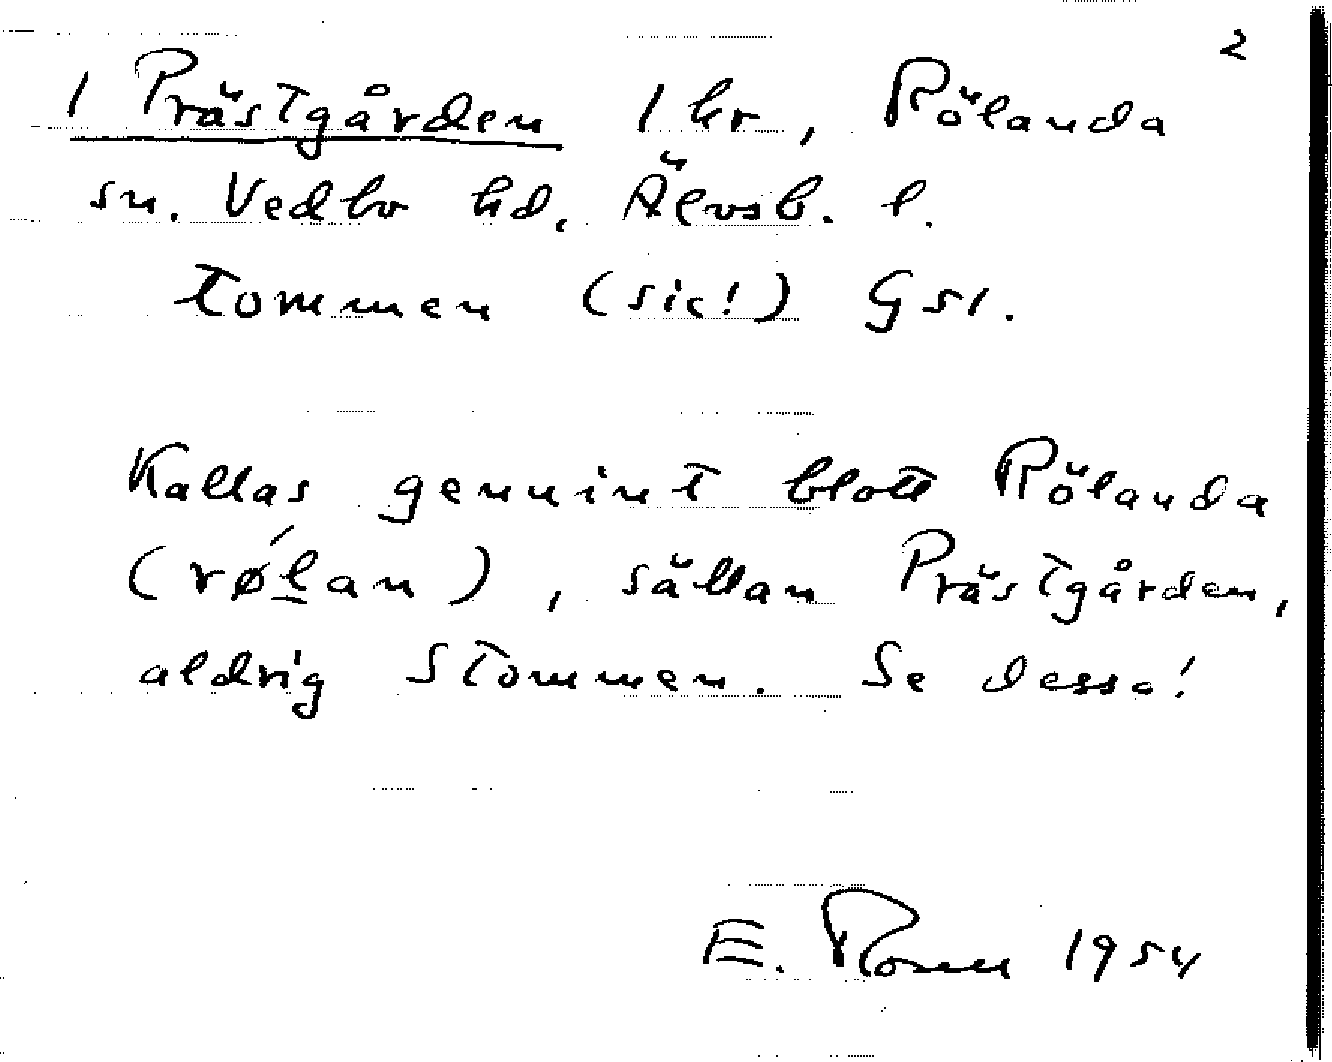 2
1 Prästgården 1 hr, Rölanda
sn. Vedbo hd. Älvsb. l.
tommen (sic!) GSl.
Kallas genuint blott Rölanda
(rø´l̲an), sällan Prästgården,
aldrig Stommen. Se dessa!
E. 1954